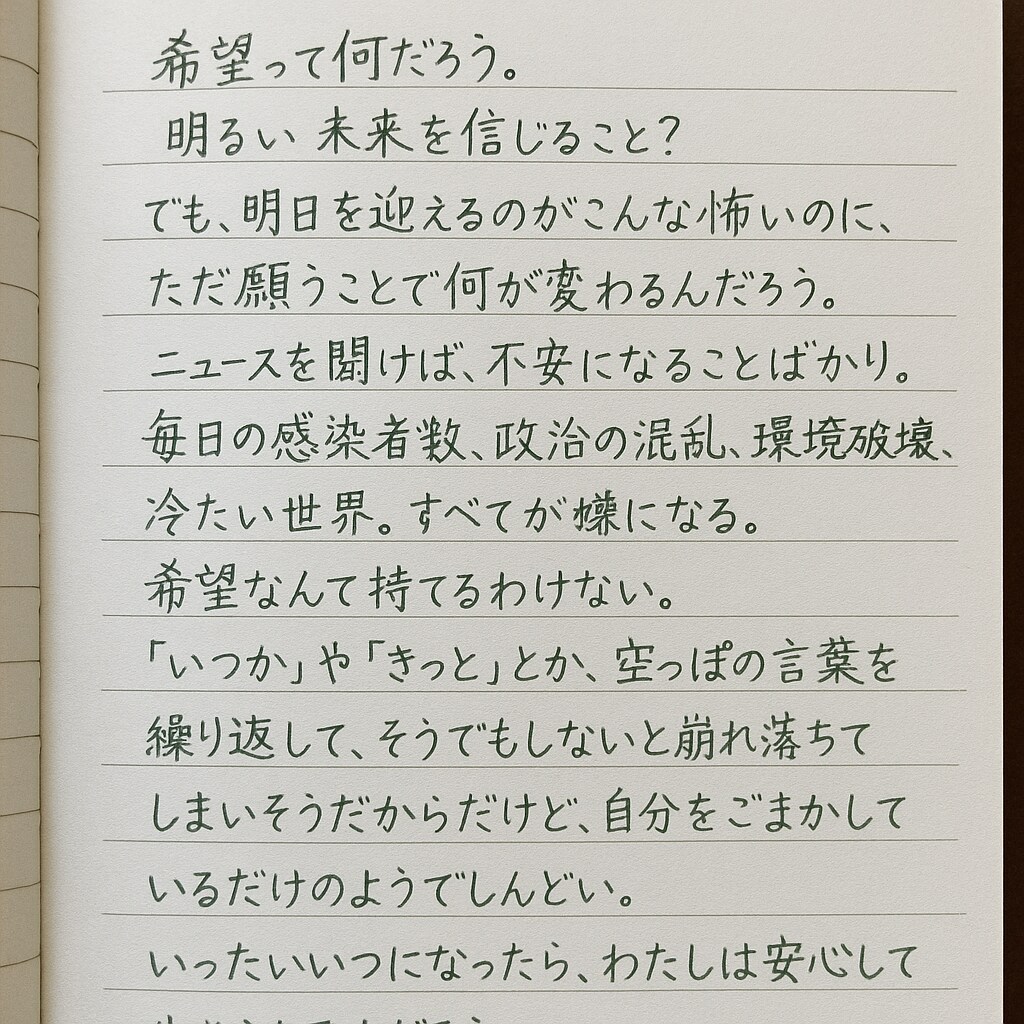 希望って何だろう。
明るい未来を信じること?
でも、明日を迎えるのがこんな怖いのに、
ただ願うことで何が変わるんだろう。
ニュースを聞けば、不安になることばかり。
毎日の感染者数、政治の混乱、環境破壊、
冷たい世界。すべてが になる。
希望なんて持てるわけない。
「いつか」や「きっと」とか、空っぽの言葉を
繰り返して、そうでもしないと崩れ落ちて
しまいそうだからだけど、自分をごまかして
いるだけのようでしんどい。
いったいいつになったら、わたしは安心して